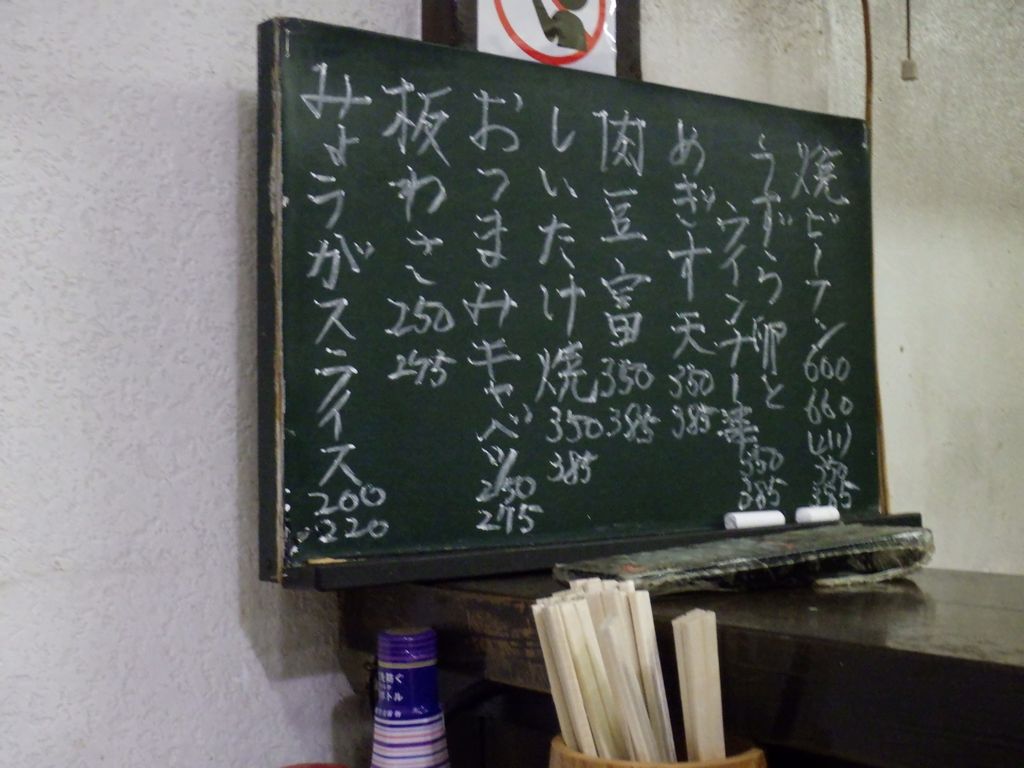 焼ビーフン 600 660 (小) 350 385
うずら卵と
ウインナー串 350 385
めぎす天 350 385
肉豆富 350 385
しいたけ焼 350 385
おつまみキャベツ 250 275
板わさ 250 275
みょうがスライス 200 220
を防ぐ
ボトル